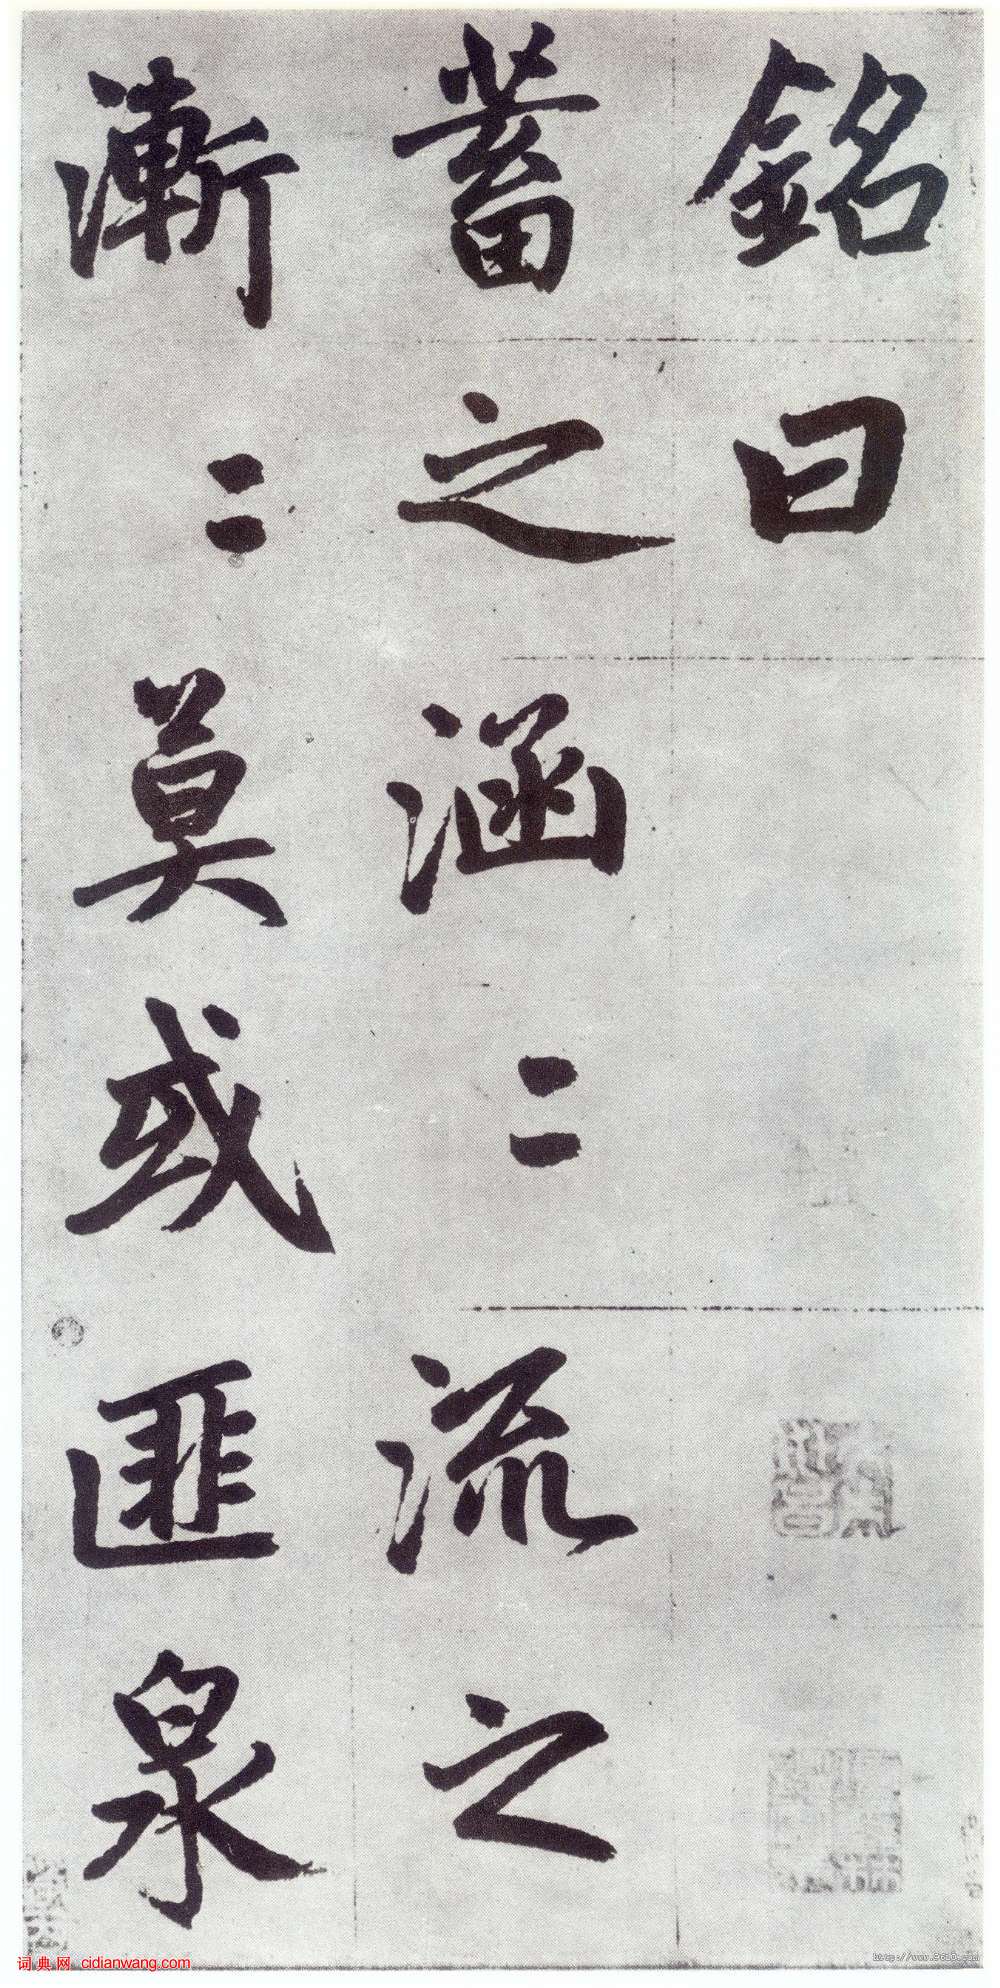 銘曰
蓄之涵〻流之
漸〻莫或匪泉
词典网 cidianwang.com